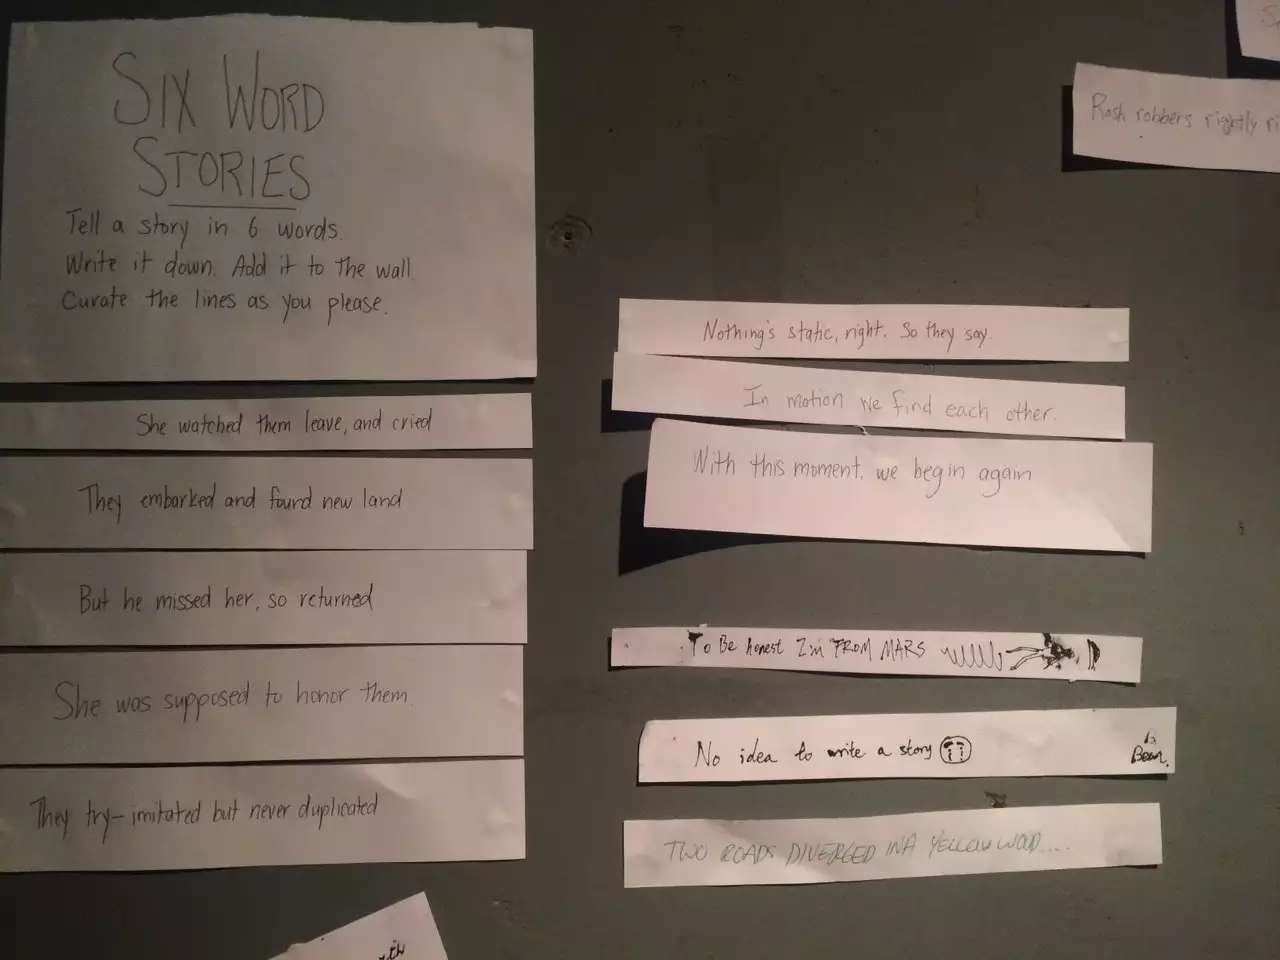 SIX WORD
STORIES
Tell a story in 6 words.
Write it down. Add it to the wall.
Curate the lines as you please.
She watched them leave, and cried
They embarked and found new land
But he missed her, so returned
She was supposed to honor them.
They try-imitated but never duplicated
Rash robbers rightly
Nothing's static, right. So they say.
In motion we find each other.
With this moment, we begin again
To Be honest I'm FROM MARS
No idea to write a story
Bean.
TWO ROADS DIVERGED IN A YELLOW WOOD....